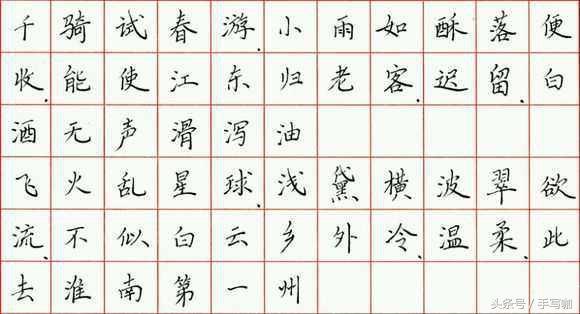 千骑试春游.小雨如酥落便
收、能使江东归老客.迟留、白
酒无声滑泻油
飞火乱星球.浅黛横波翠欲
流、不似白云乡外冷.温柔、此
去淮南第一州
头条号 / 手写咖